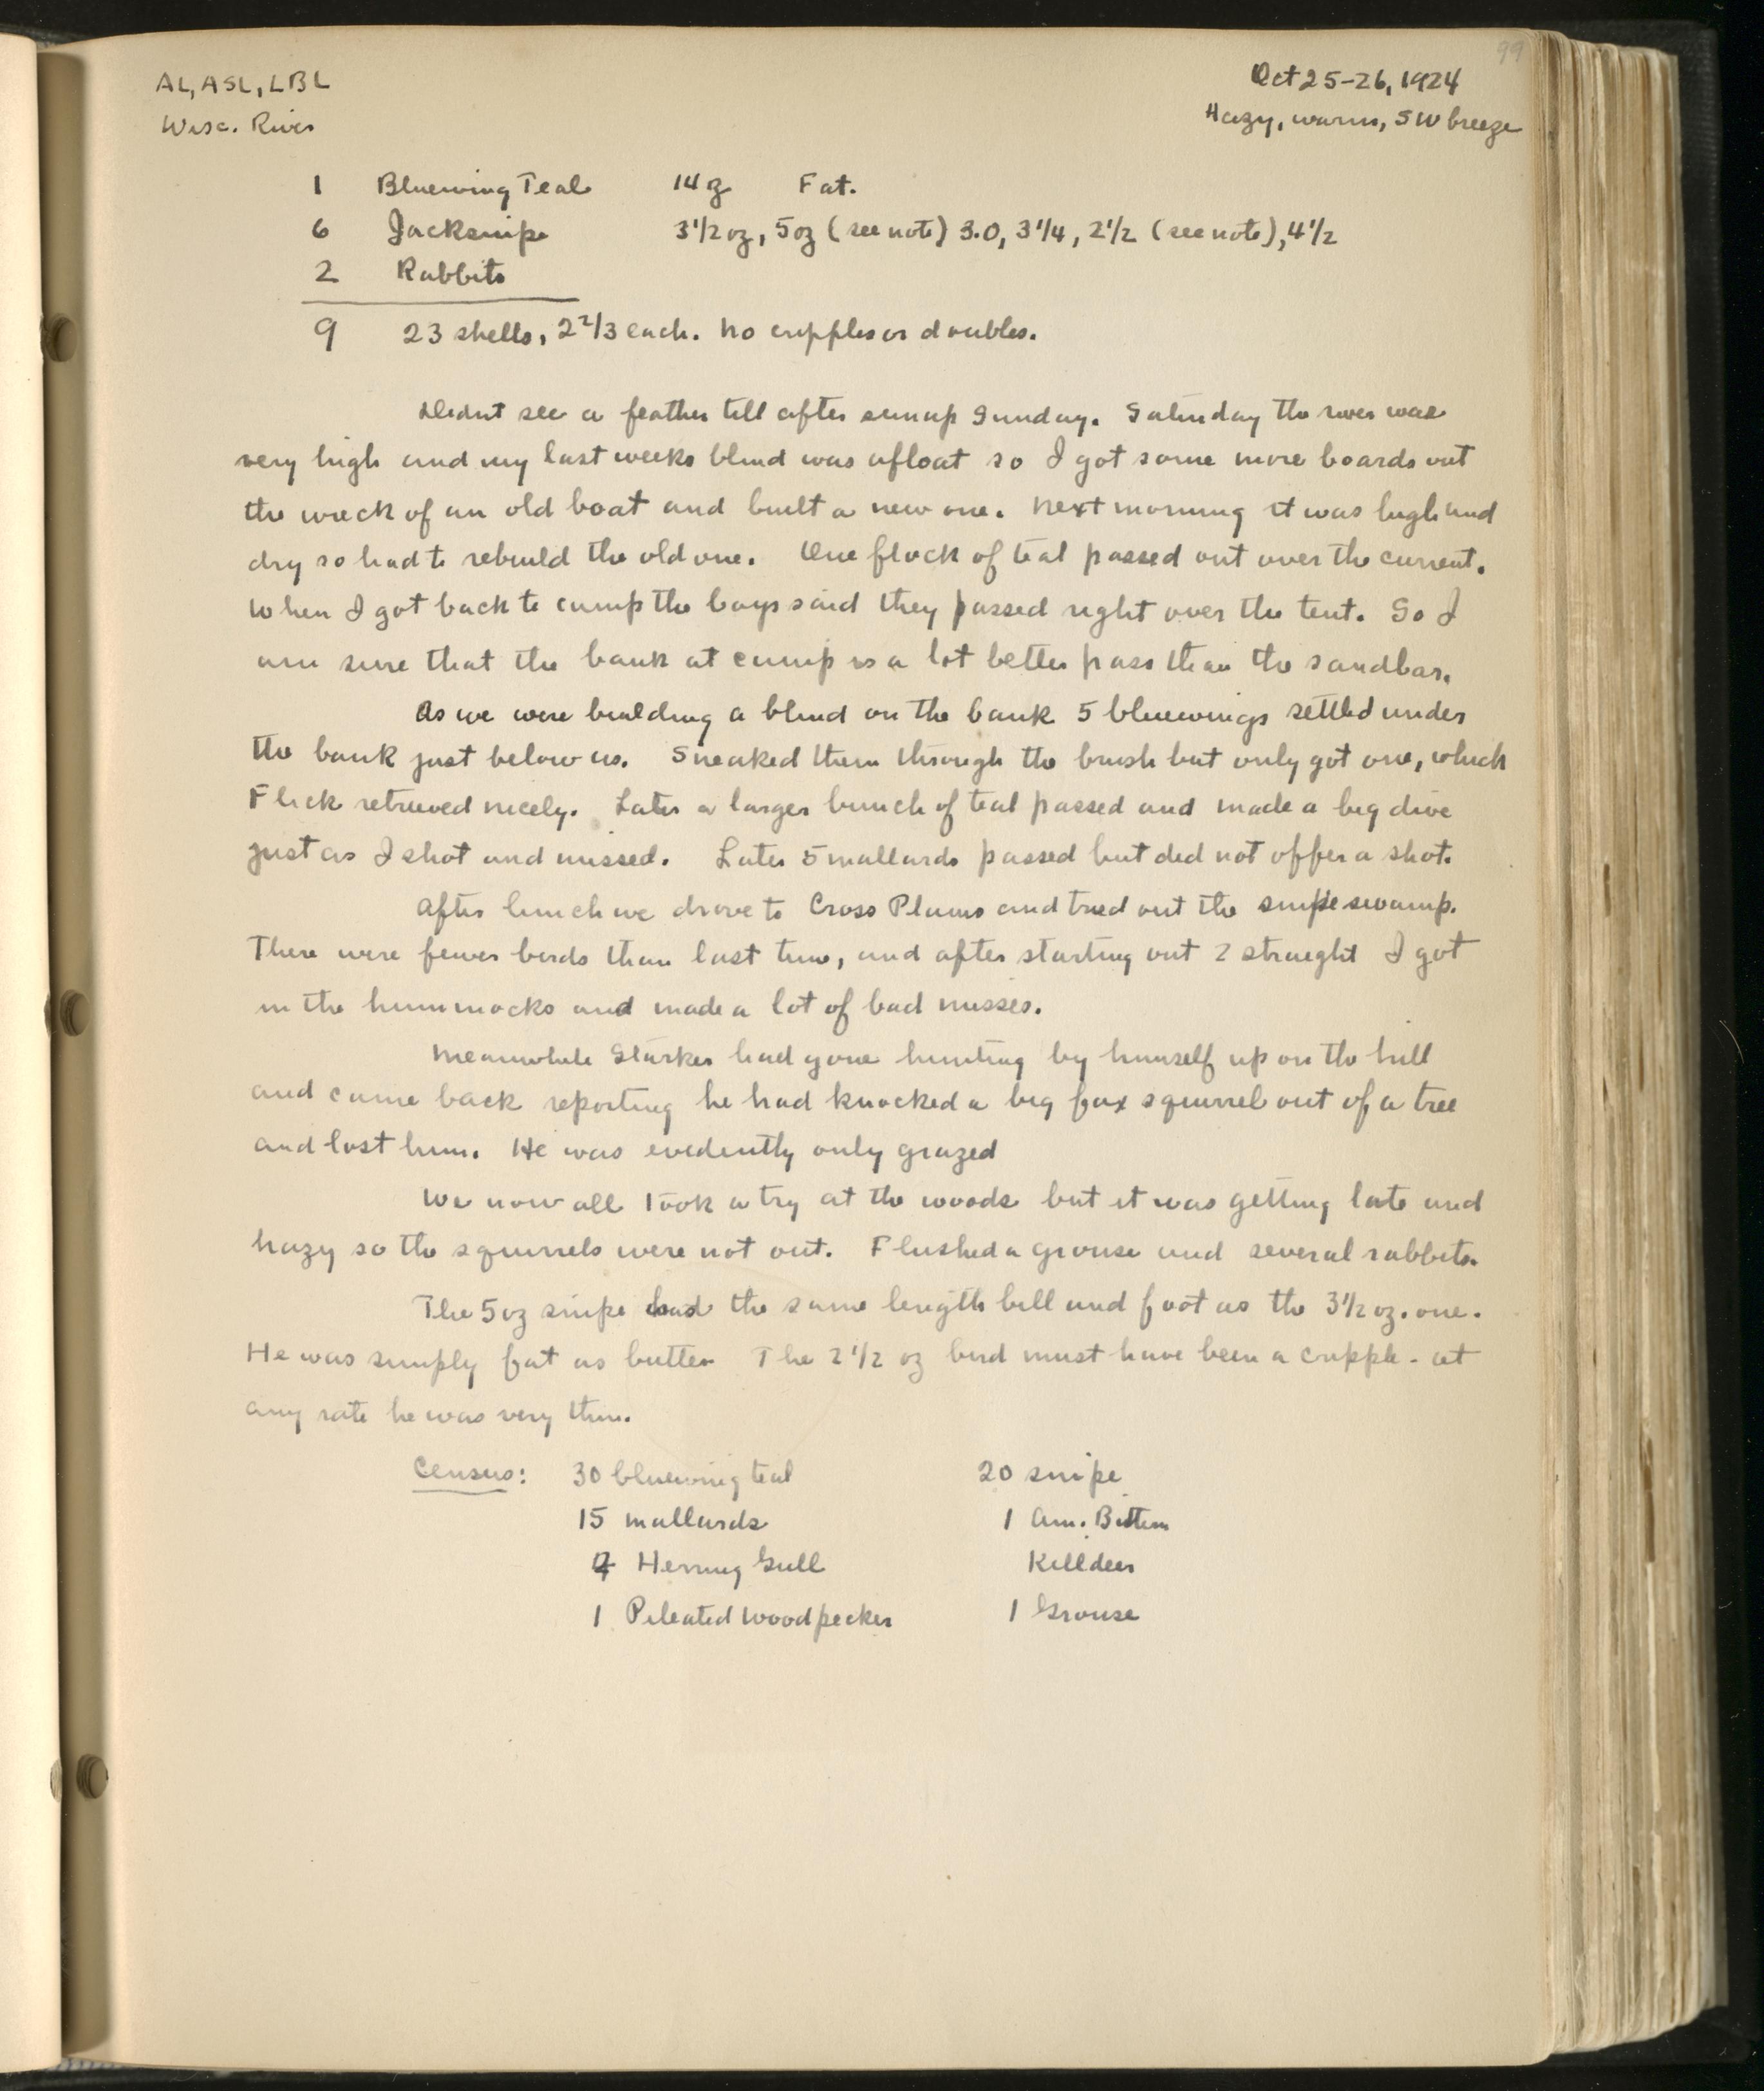 99
AL, ASL, LBL
Oct 25-26, 1924
Wisc. River
Hazy, warm, SW breeze
1 Bluewing Teal 14 oz Fat.
6 Jacksnipe 3 1/2 oz, 5 oz (see note) 3.0, 3 1/4, 2 1/2 (see note), 4 1/2
2 Rabbits
9 23 shells, 2 2/3 each. No cripples or doubles.
Didnt see a feather till after sunup Sunday. Saturday the river was
very high and my last weeks blind was afloat so I got some more boards out
the wreck of an old boat and built a new one. Next morning it was high and
dry so had to rebuild the old one. One flock of teal passed out over the current.
When I got back to camp the boys said they passed right over the tent. So I
am sure that the bank at camp is a lot better pass than the sandbar.
As we were building a blind on the bank 5 bluewings settled under
the bank just below us. Sneaked them through the brush but only got one, which
Flick retrieved nicely. Later a larger bunch of teal passed and made a big dive
just as I shot and missed. Later 5 mallards passed but did not offer a shot.
After lunch we drove to Cross Plains and tried out the snipe swamp.
There were fewer birds than last time, and after starting out 2 straight I got
in the hummocks and made a lot of bad misses.
Meanwhile Starker had gone hunting by himself up on the hill
and came back reporting he had knocked a big fox squirrel out of a tree
and lost him. He was evidently only grazed
We now all took a try at the woods but it was getting late and
hazy so the squirrels were not out. Flushed a grouse and several rabbits.
The 5 oz snipe had the same length bill and foot as the 3 1/2 oz. one.
He was simply fat as butter The 2 1/2 oz bird must have been a cripple - at
any rate he was very thin.
Census: 30 bluewing teal 20 snipe
15 mallards 1 Am. Bittern
Herring Gull Killdeer
1 Pileated Woodpecker 1 Grouse